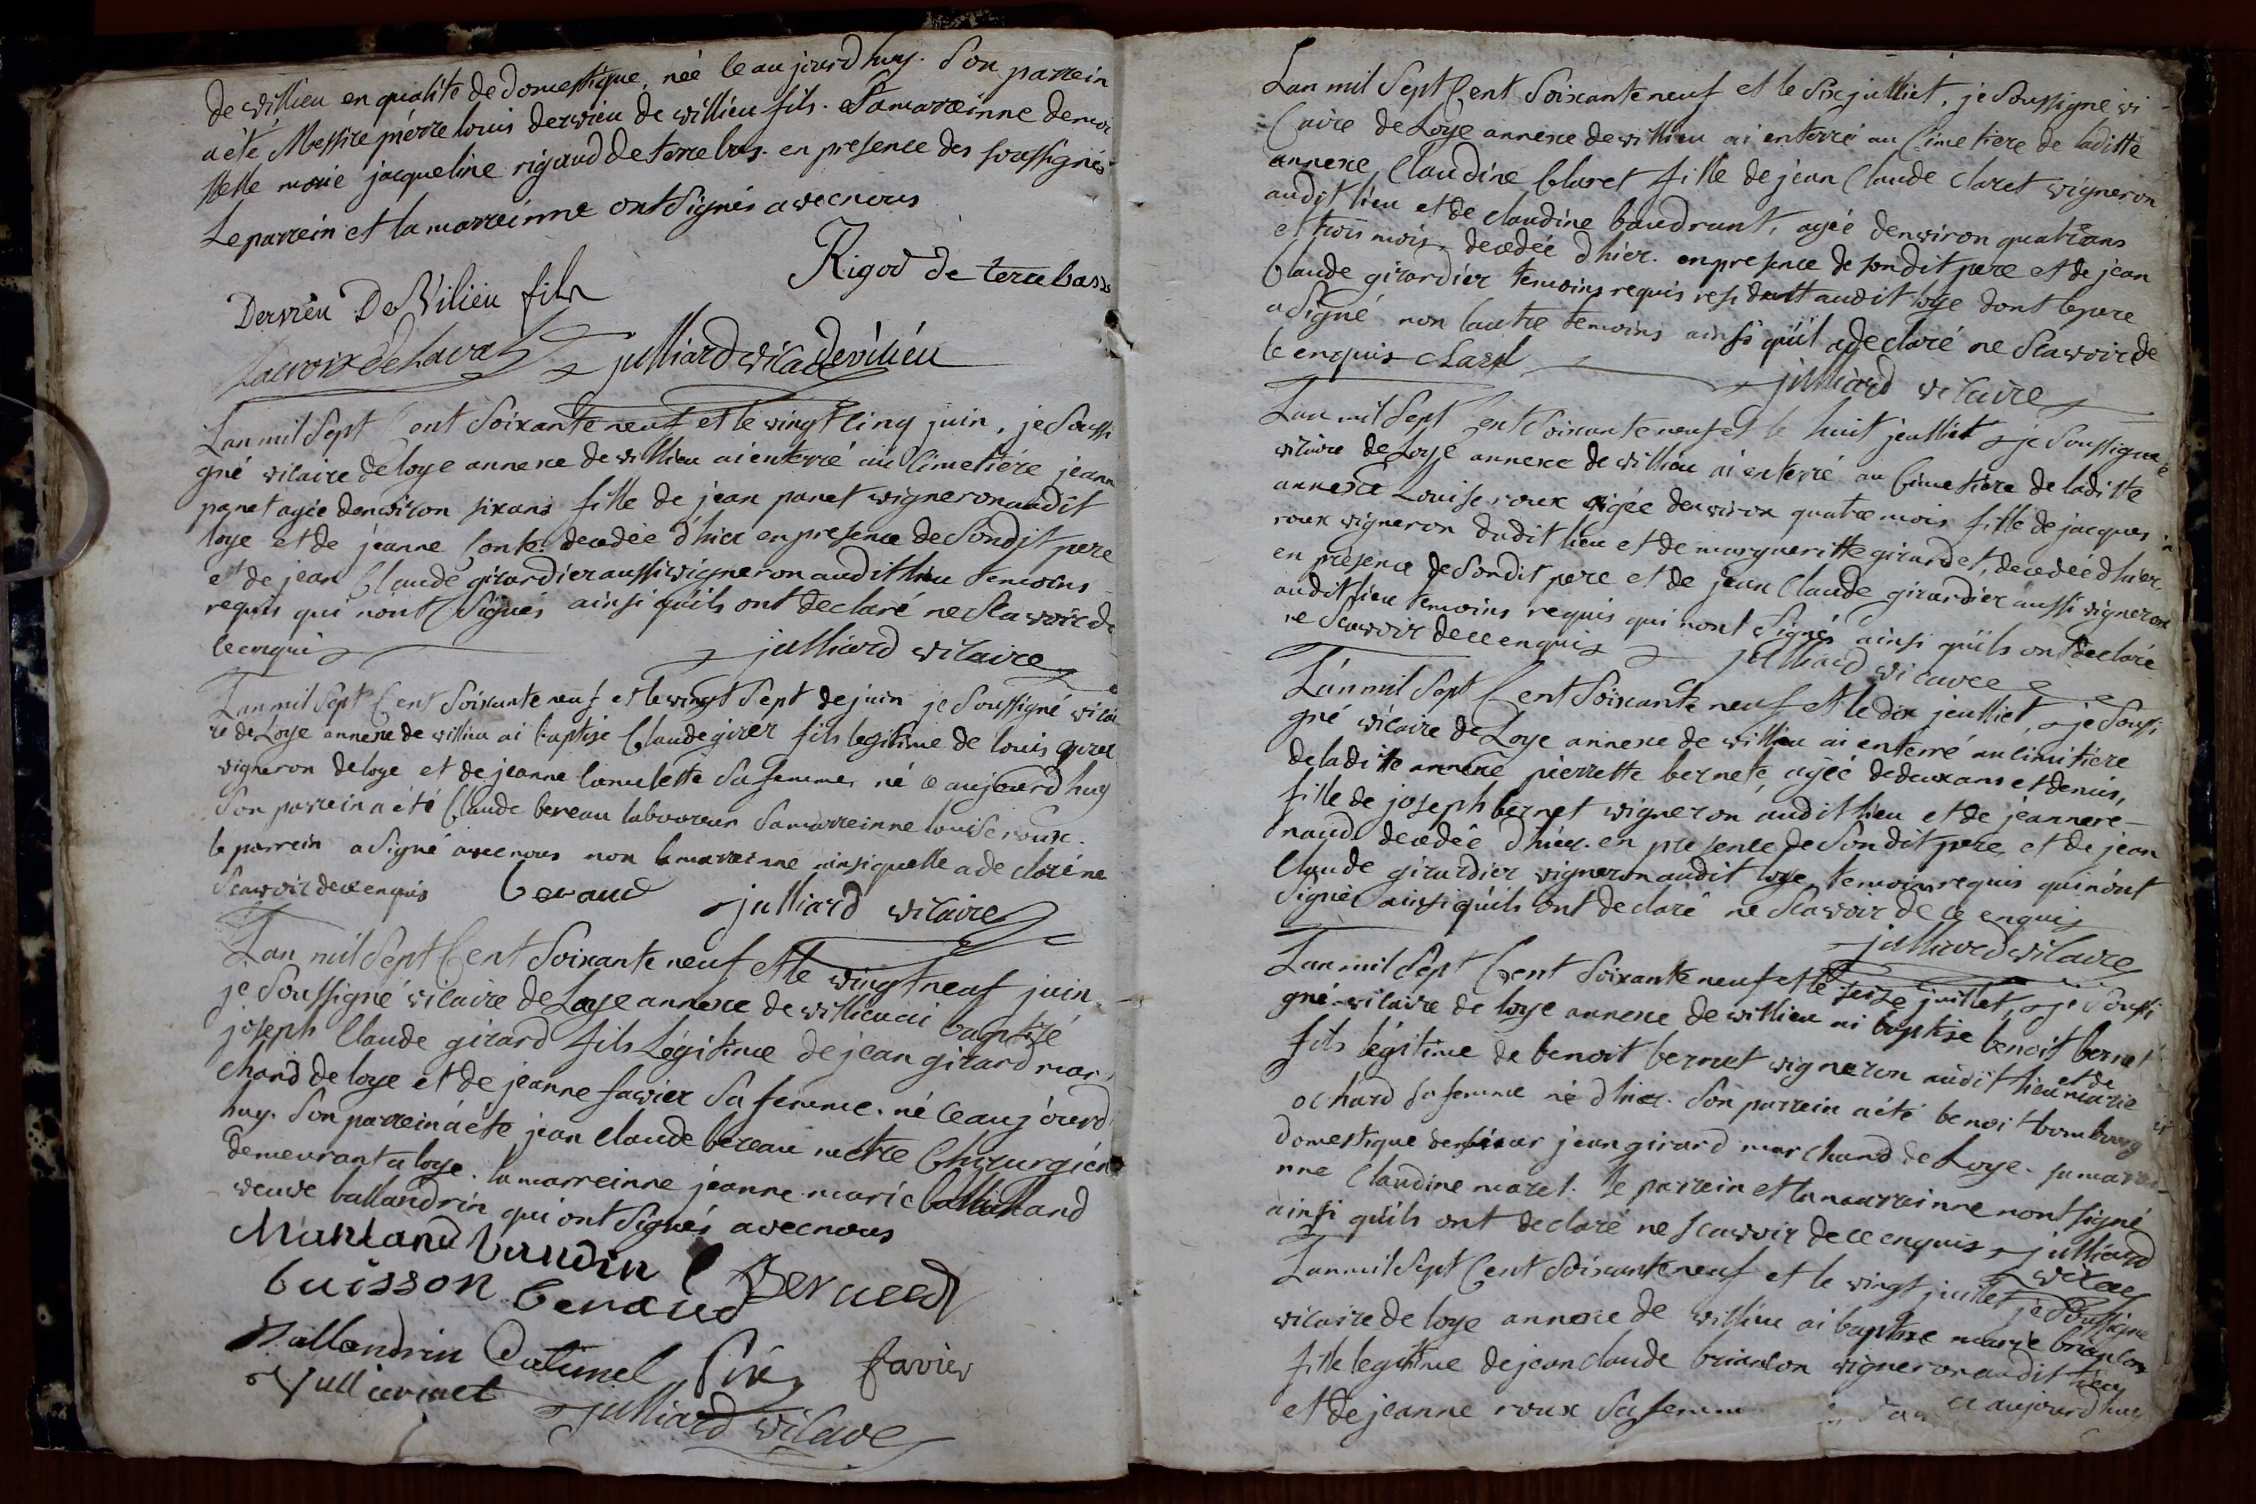 de willieu en qualité de domestique, née le aujourdhuy. Son parrein
a été Messire pierre louis derwieu de willieu fils. Samareinne demoi
selle marie jacqueline rigaud de terrebas. en presence des soussignés
Le parrein et la marreinne ont Signés avec nous
Rigod de terrebass
Dervieu De Vilieu fils
Lacroix de Laval julliard vicaire devilieu
Lan mil Sept Cent Soixante neuf et le wingt cinq juin, je Soussi
gné vicaire de loye annexe de willieu ai enterré au Cimetiére jeanne
panet agée denwiron six ans fille de jean panet wigneron audit
loye et de jeanne Conte. decedée d'hier en presence de Sondit pere
et de jean Claude girardier aussi wigneron audit lieu temoins
requis qui nont Signés ainsi quils ont declaré ne Scawoir de
ce enquis julliard vicaire
Lan mil Sept Cent Soixante neuf et le wingt Sept de juin je Soussigné vicai
re de Loye annexe de willieu ai baptisé Claude girer fils legitime de louis girer
wigneron de loye et de jeanne lamulette Sa femme, né ce aujourdhuy
Son parrein a été Claude bereau laboureur Samarreinne louise roux.
le parrein a Signé avec nous non la marreinne ainsi quelle a declaré ne
Scawoir de ce enquis beraud julliard vicaire
Lan mil Sept Cent Soixante neuf et le wingt neuf juin
je Soussigné vicaire de Loye annexe de willieu ai baptizé
joseph Claude girard fils Légitime de jean girard mar
chand de loye et de jeanne fawier Sa femme. né ce aujourd
huy. Son parrein a été jean claude bereau metre Chirurgien
demeurant a loye. la marreinne jeanne marie
weuwe ballandrin qui ont Signés avec nous
Marland baudin
buisson beraud
Ballandrin favier
Vulliermet
julliard vicaire
Lan mil Sept Cent Soixante neuf et le Six julliet, je Soussigné vi
Caire de Loye annexe de willieu ai enterré au Cimetiere de laditte
annexe Claudine Claret fille de jean Claude Claret wigneron
audit lieu et de claudine baudrant, agée denwiron quatre ans
et trois mois, decedée d'hier. en presence de Sondit pere et de jean
Claude girardier temoins requis residant audit loye dont le pere
a Signé non lautre temoins ainsi quil a declaré ne Scawoir de
ce enquis Claret julliard vicaire
Lan mil Sept Cent Soixante neuf et le huit jeulliet, je Soussigné
vicaire de Loye annexe de willieu ai enterré au Cimetiere de laditte
annexe Louise roux agée denwiron quatre mois fille de jacques
roux wigneron dudit lieu et de margueritte girardet, decedée d'hier,
en presence de Sondit pere et de jean Claude girardier aussi wigneron
audit lieu temoins requis qui nont Signés ainsi quils ont declaré
ne Scawoir de ce enquis julliard vicaire
Lan mil Sept Cent Soixante neuf et le dix jeulliet, je Soussi
gné vicaire de Loye annexe de willieu ai enterré au Cimitiere
de laditte annexe pierrette bernete, agée de deux ans et demis,
fille de joseph bernet wigneron audit lieu et de jeanne re-
naud decedée d'hier. en presence de Sondit pere et de jean
Claude girardier wigneron audit loye temoins requis qui nont
Signé ainsi quils ont declaré ne Scawoir de ce enquis
julliard vicaire
Lan mil Sept Cent Soixante neuf et le Seize juillet, je Soussi
gné vicaire de loye annexe de willieu ai baptisé benoit bernet
fils légitime de benoit bernet wigneron audit lieu et de marie
ochard Sa femme né d'hier. Son parrein a été benoit bombourg
domestique de Sieur jean girard marchand de Loye. Sa marrei-
nne Claudine maret. le parrein et la maarreinne nont signé
ainsi quils ont declaré ne Scawoir de ce enquis julliard
vicaire
Lan mil Sept Cent Soixante neuf et le wingt juillet je Soussigné
vicaire de loye annexe de willieu ai baptisé marie briançon
fille legitime de jean claude briançon wigneron audit lieu
et de jeanne roux Sa femme ce aujourdhuy